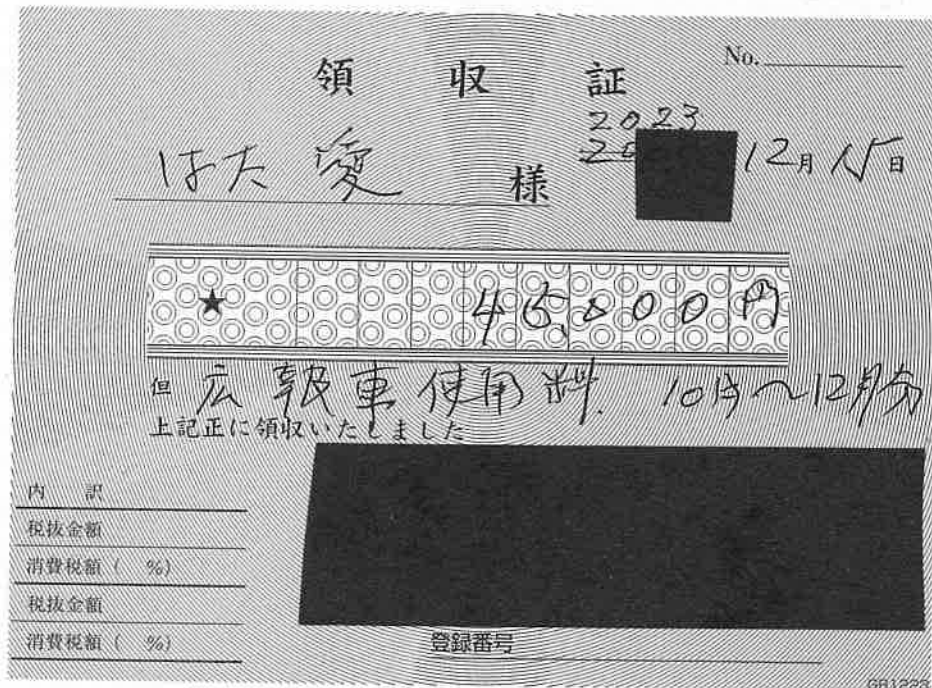 No.
領収証
2023
12月15日
はた 愛 様
★ 45,000円
但 広報車使用料 10月〜12月分
上記正に領収いたしました
内訳
税抜金額
消費税額( %)
税抜金額
消費税額( %)
登録番号
GB1223